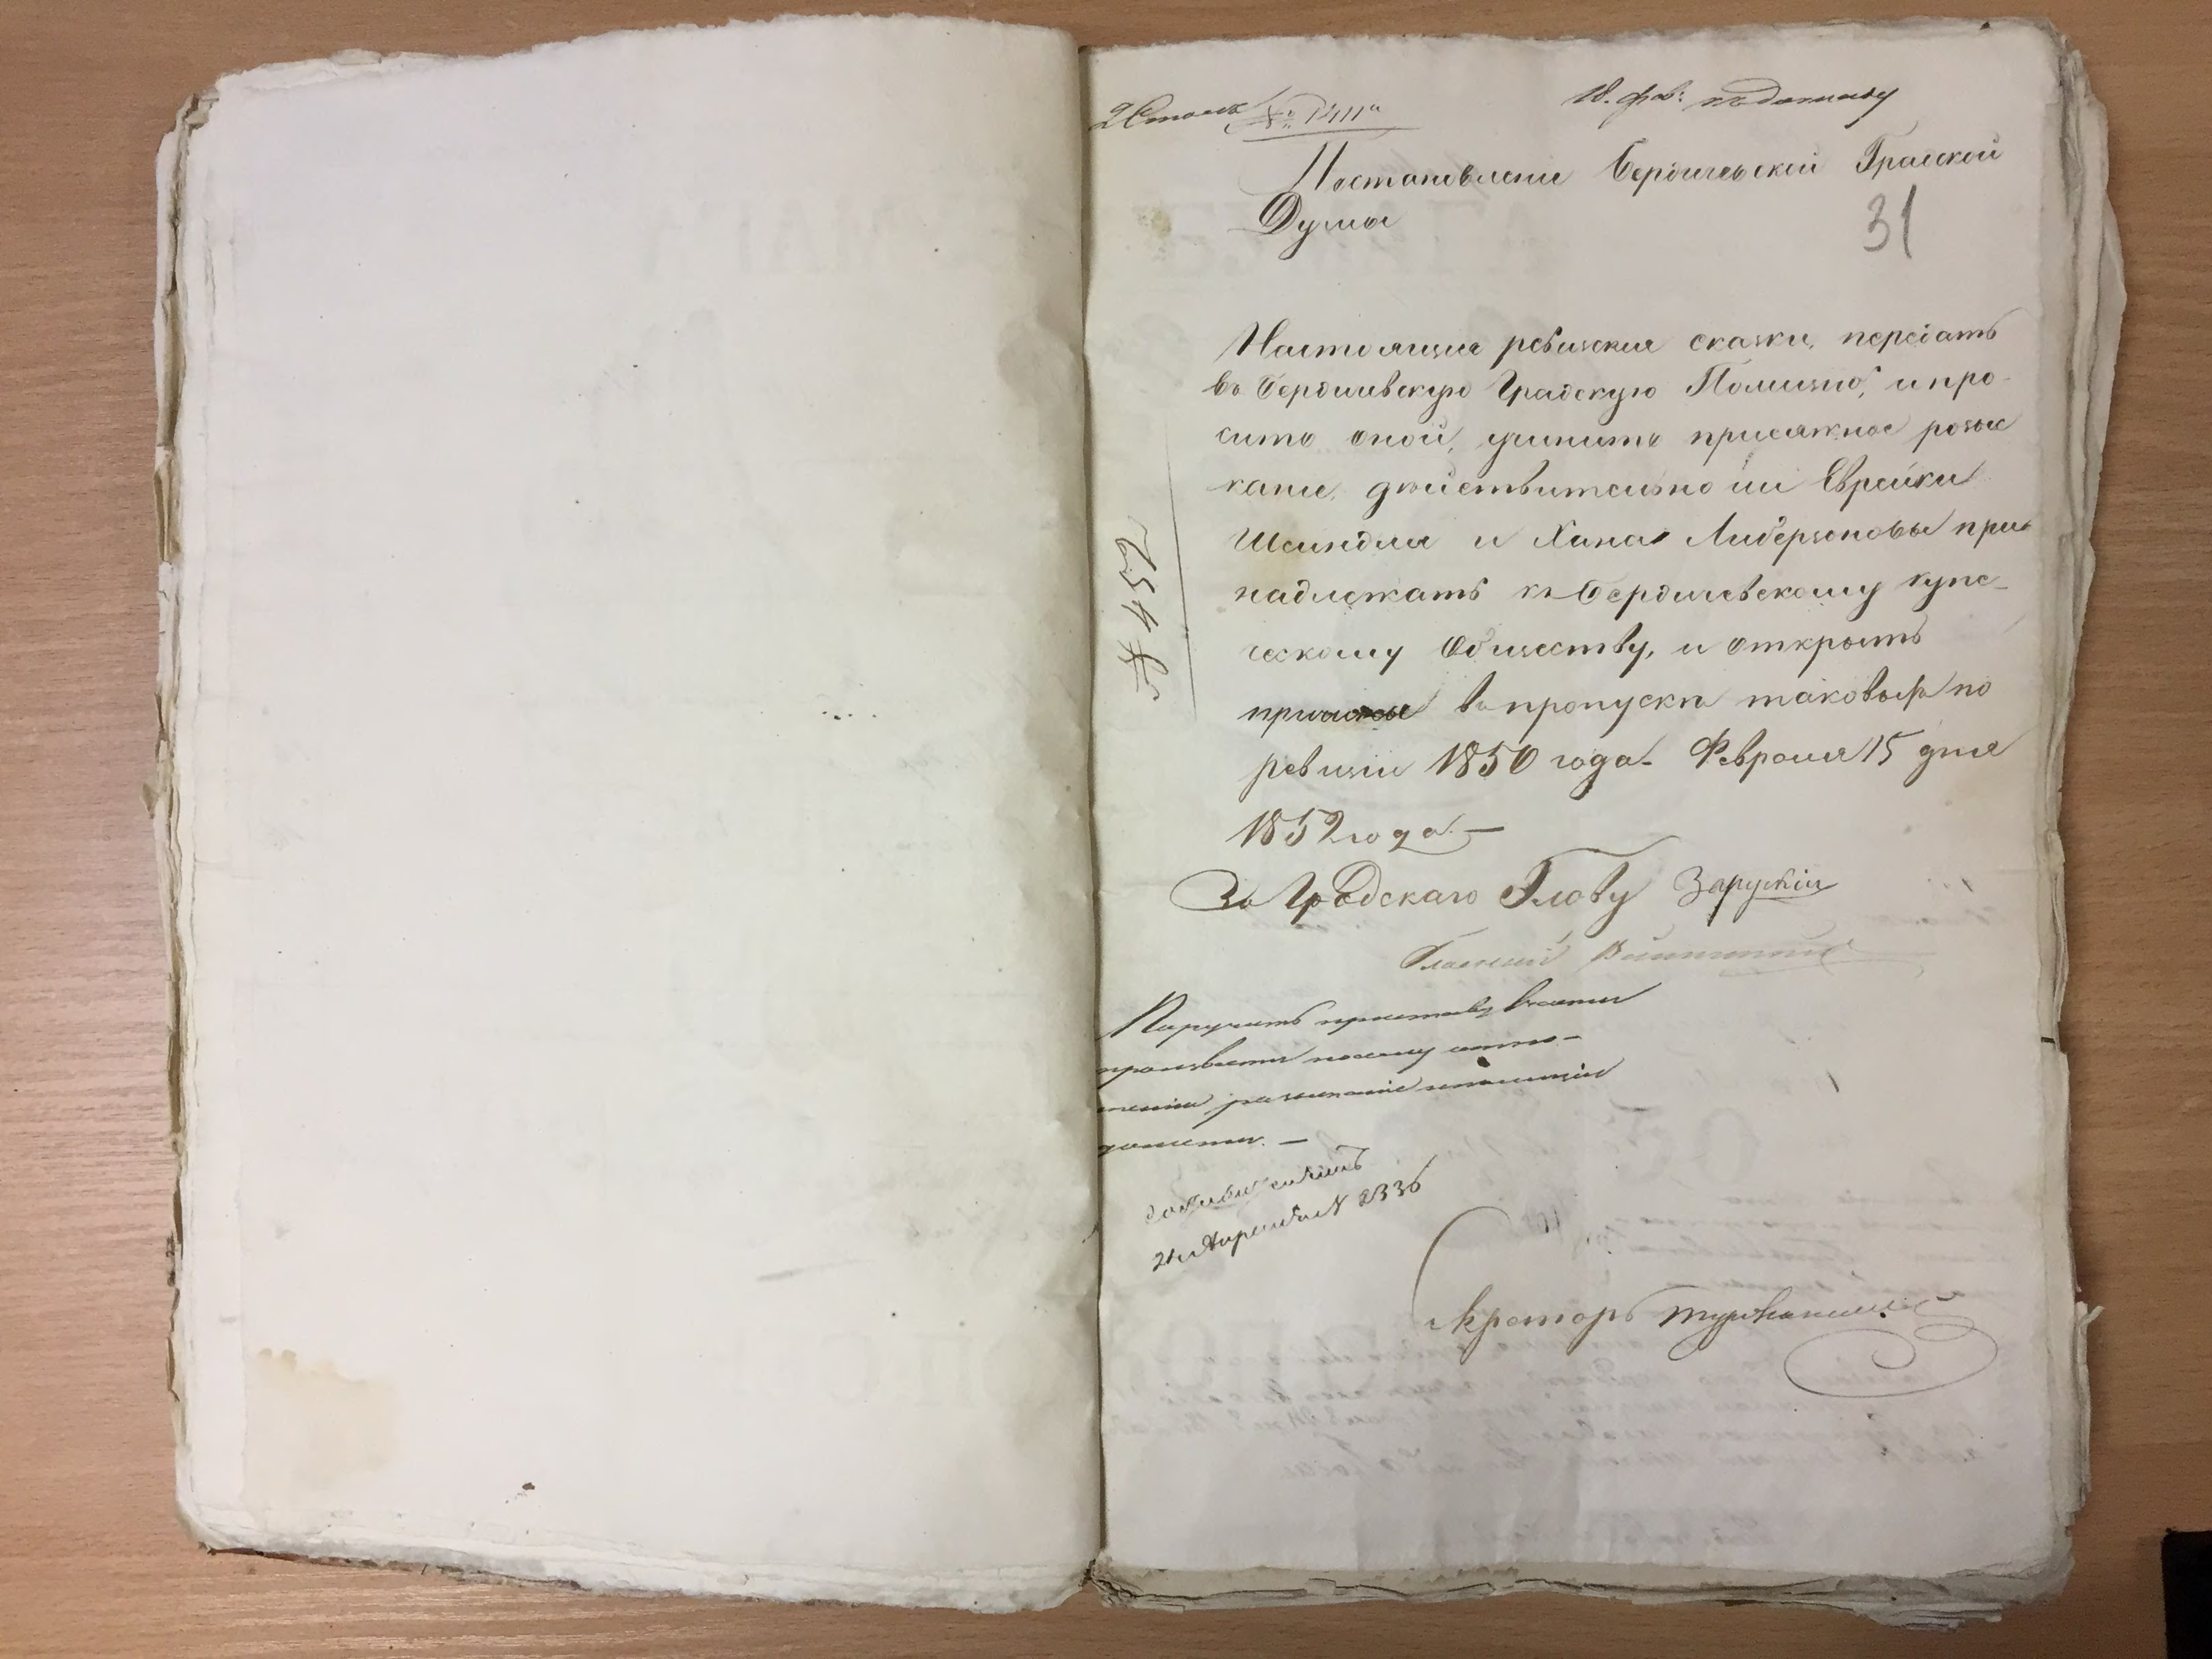 2 Столъ № 1411
18. фев: къ докладу
Постановление Бердичевской Градской
Думы
31
Настоящия ревизския сказки, передать
въ Бердичевскую Градскую Полицию, и про-
сить оной, учинить присяжное розыс
кание, действительно ли Еврейки
Шейндля и Хана Либерзоновы при
надлежатъ къ Бердичевскому купе-
ческому Обществу, и открыть
причины въ пропуске таковыхъ по
ревизии 1850 года. Февраля 15 дня
1852 года. —
За Градскаго Главу Заруский
Гласный
Поручить приставу части
произвести по сему отно-
шению розыскание и полиции
донести. —
№ 2336
Секретарь
№ 452